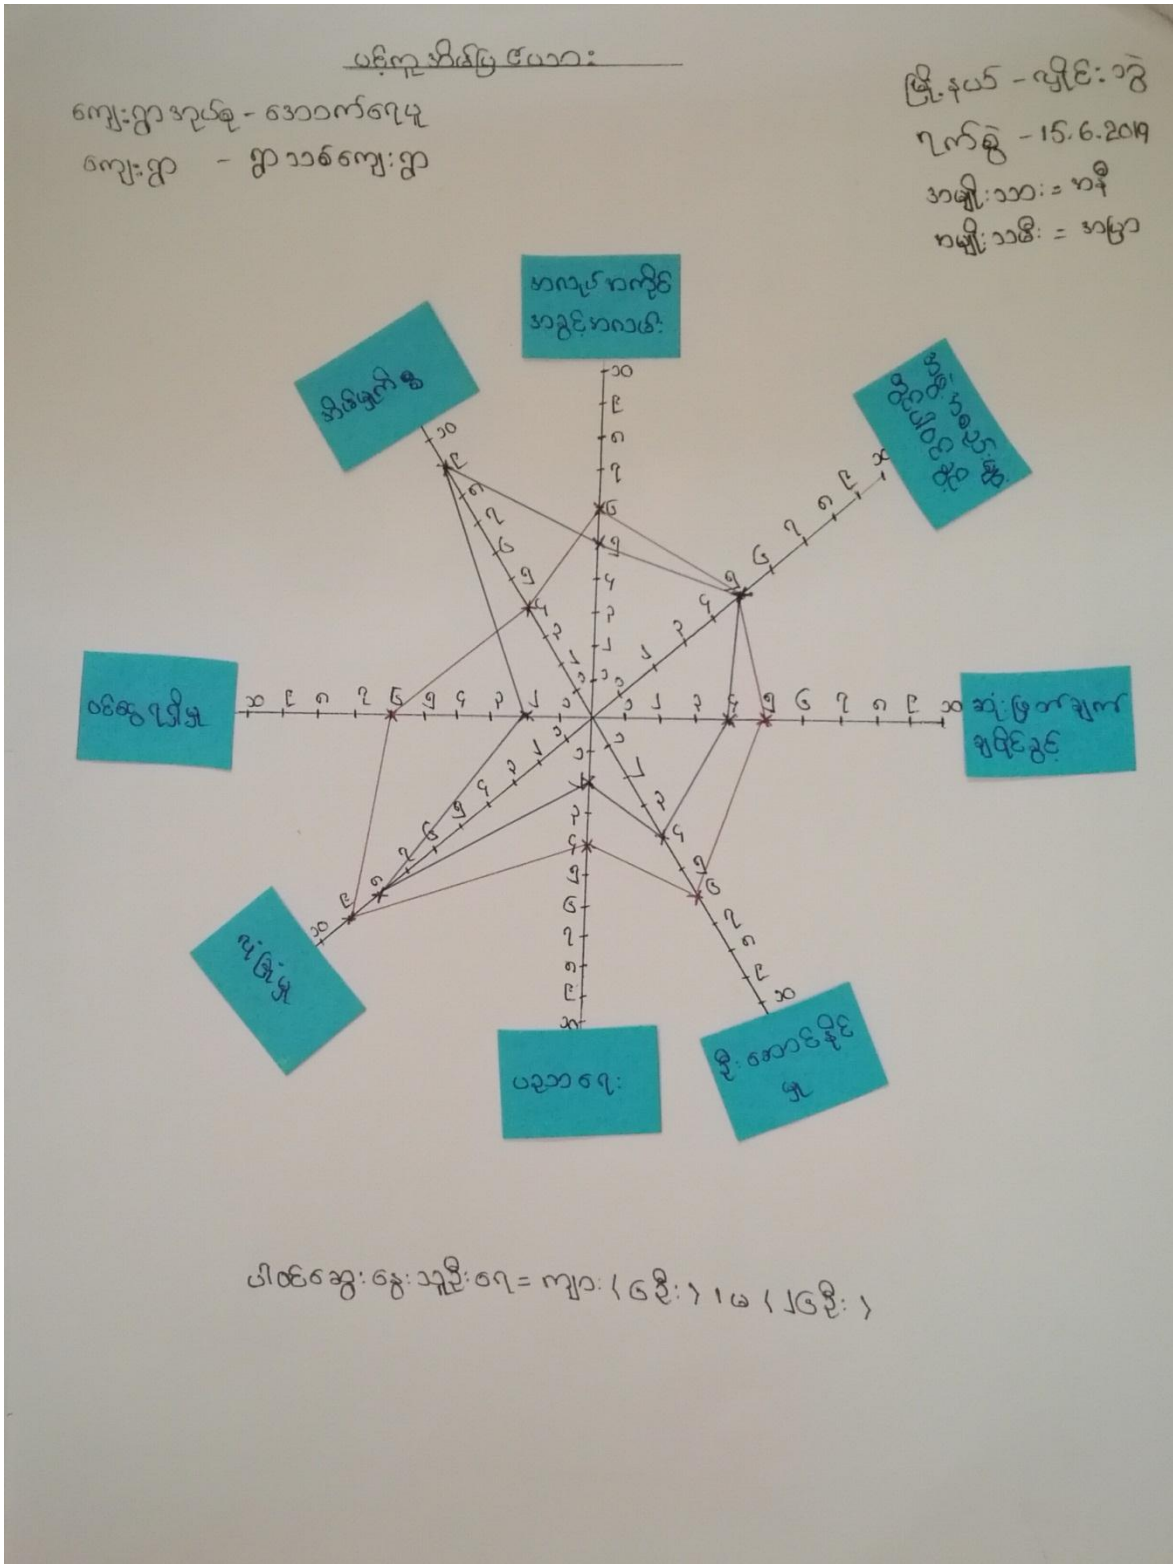 ပင့်ကူအိမ်ပြ ဇယား
ကျေးရွာအုပ်စု - အောက်ရေယူ
ကျေးရွာ - ရွာသစ်ကျေးရွာ
မြို့နယ် - လှိုင်းဘွဲ့
ရက်စွဲ - 15.6.2019
အမျိုးသား = အနီ
အမျိုးသမီး = အပြာ
အလုပ်အကိုင်
အခွင့်အလမ်း
အိမ်မှုကိစ္စ
ဝင်ငွေရရှိမှု
ဆုံးဖြတ်ချက်
ချပိုင်ခွင့်
လုံခြုံမှု
ပညာရေး
ဦးဆောင်နိုင်
မှု
၁
၂
၃
၄
၅
၆
၇
၈
၉
၁၀
ပါဝင်ဆွေးနွေးသူဦးရေ = ကျား (၆ဦး) ၊ မ (၂၆ဦး)